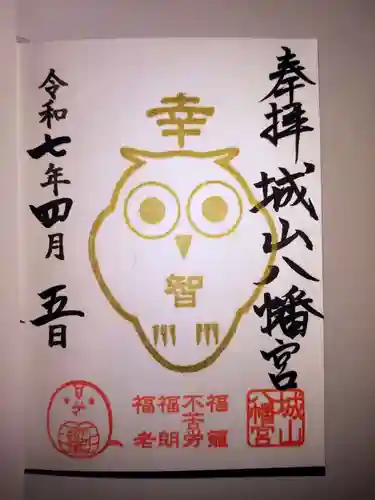 奉拝
城山八幡宮
幸
智
福籠
不古労
福朗
福老
城山
八幡宮
令和七年四月五日